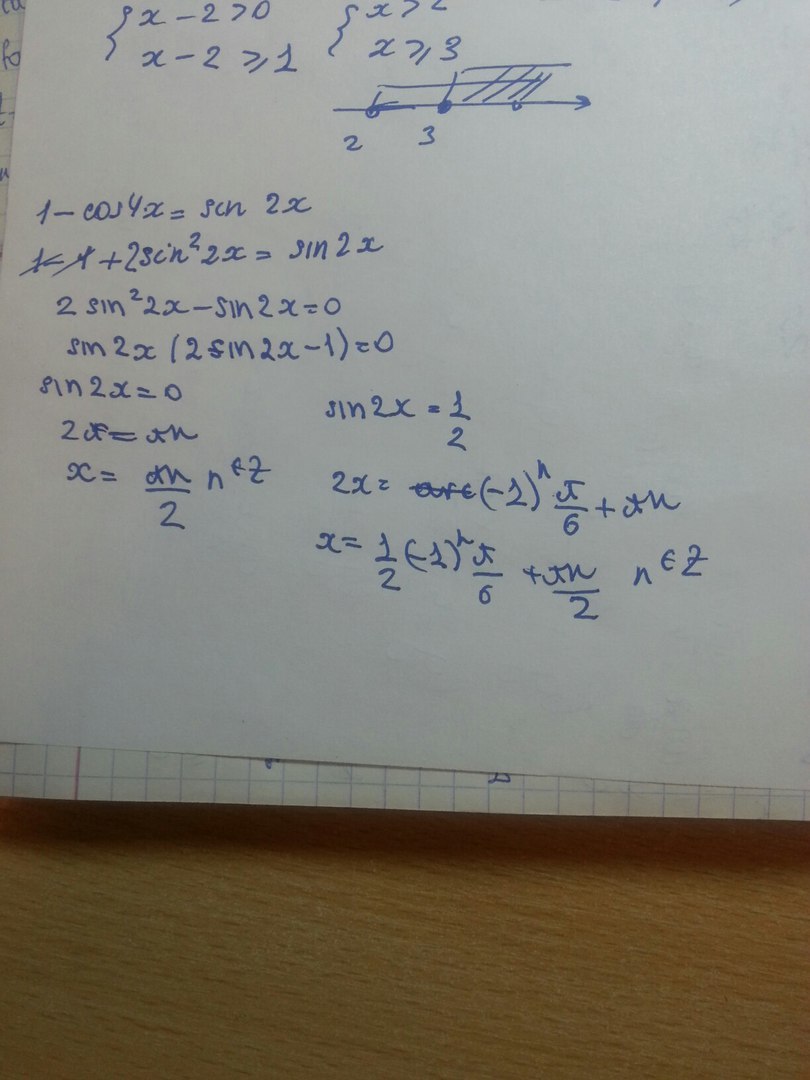 { x - 2 > 0   { x > 2
x - 2 ⩾ 1   x ⩾ 3
2   3
1 - cos4x = sin 2x
1 - 1 + 2sin²2x = sin2x
2 sin²2x - sin2x = 0
sin2x (2sin2x - 1) = 0
sin2x = 0   sin2x = 1/2
2x = πn   2x = (-1)ⁿ π/6 + πn
x = πn/2 n∈Z   x = 1/2 (-1)ⁿ π/6 + πn/2 n∈Z